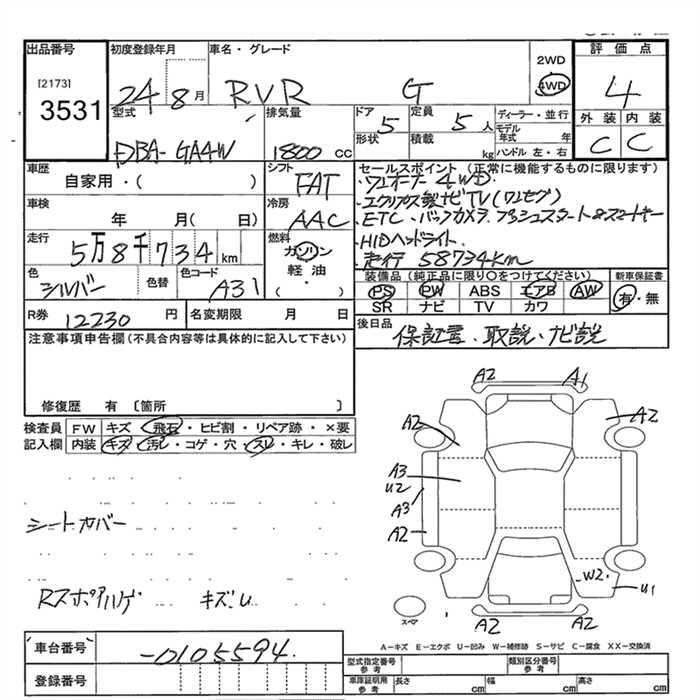 出品番号 初度登録年月 車名・グレード 評価点
[2173] 2WD
3531 24 8月 RVR G 4WD 4
型式 排気量 ドア 5 定員 5人 ディーラー・並行 外装 内装
DBA-GA4W 1800cc 形状 積載 kg モデル年式 年 C C
ハンドル 左・右
車歴 シフト セールスポイント(正常に機能するものに限ります)
自家用・( ) FAT ・ワンオーナー 4WD.
車検 冷房 ・エクリプス製ナビTV(ワンセグ)
年 月( 日) AAC ・ETC・バックカメラ プッシュスタート&スマートキー
走行 燃料 ・HIDヘッドライト.
5万8千734km ガソリン ・走行 58734km
色 色替 色コード 軽油・ 装備品(純正品に限り○をつけてください) 新車保証書
シルバー A31 ( ) PS PW ABS エアB AW 有・無
SR ナビ TV カワ
R券 12230円 名変期限 月 日 後日品
注意事項申告欄(不具合内容等は具体的に記入して下さい) 保証書、取説、ナビ説
修復歴 有〔箇所 〕
検査員 FW キズ・飛石・ヒビ割・リペア跡・×要
記入欄 内装 キズ・汚し・コゲ・穴・スレ・キレ・破レ
A2 A1
A2 A2
A3
U2
A3
A2
シートカバー
W2 U1
Rスポイラハゲ キズU
スペア
A2 A2
A-キズ E-エクボ U-凹み W-補修跡 S-サビ C-腐食 XX-交換済
車台番号 -0105594. 型式指定番号 参考 類別区分番号 参考
登録番号 車庫証明用 参考 長さ cm 幅 cm 高さ cm